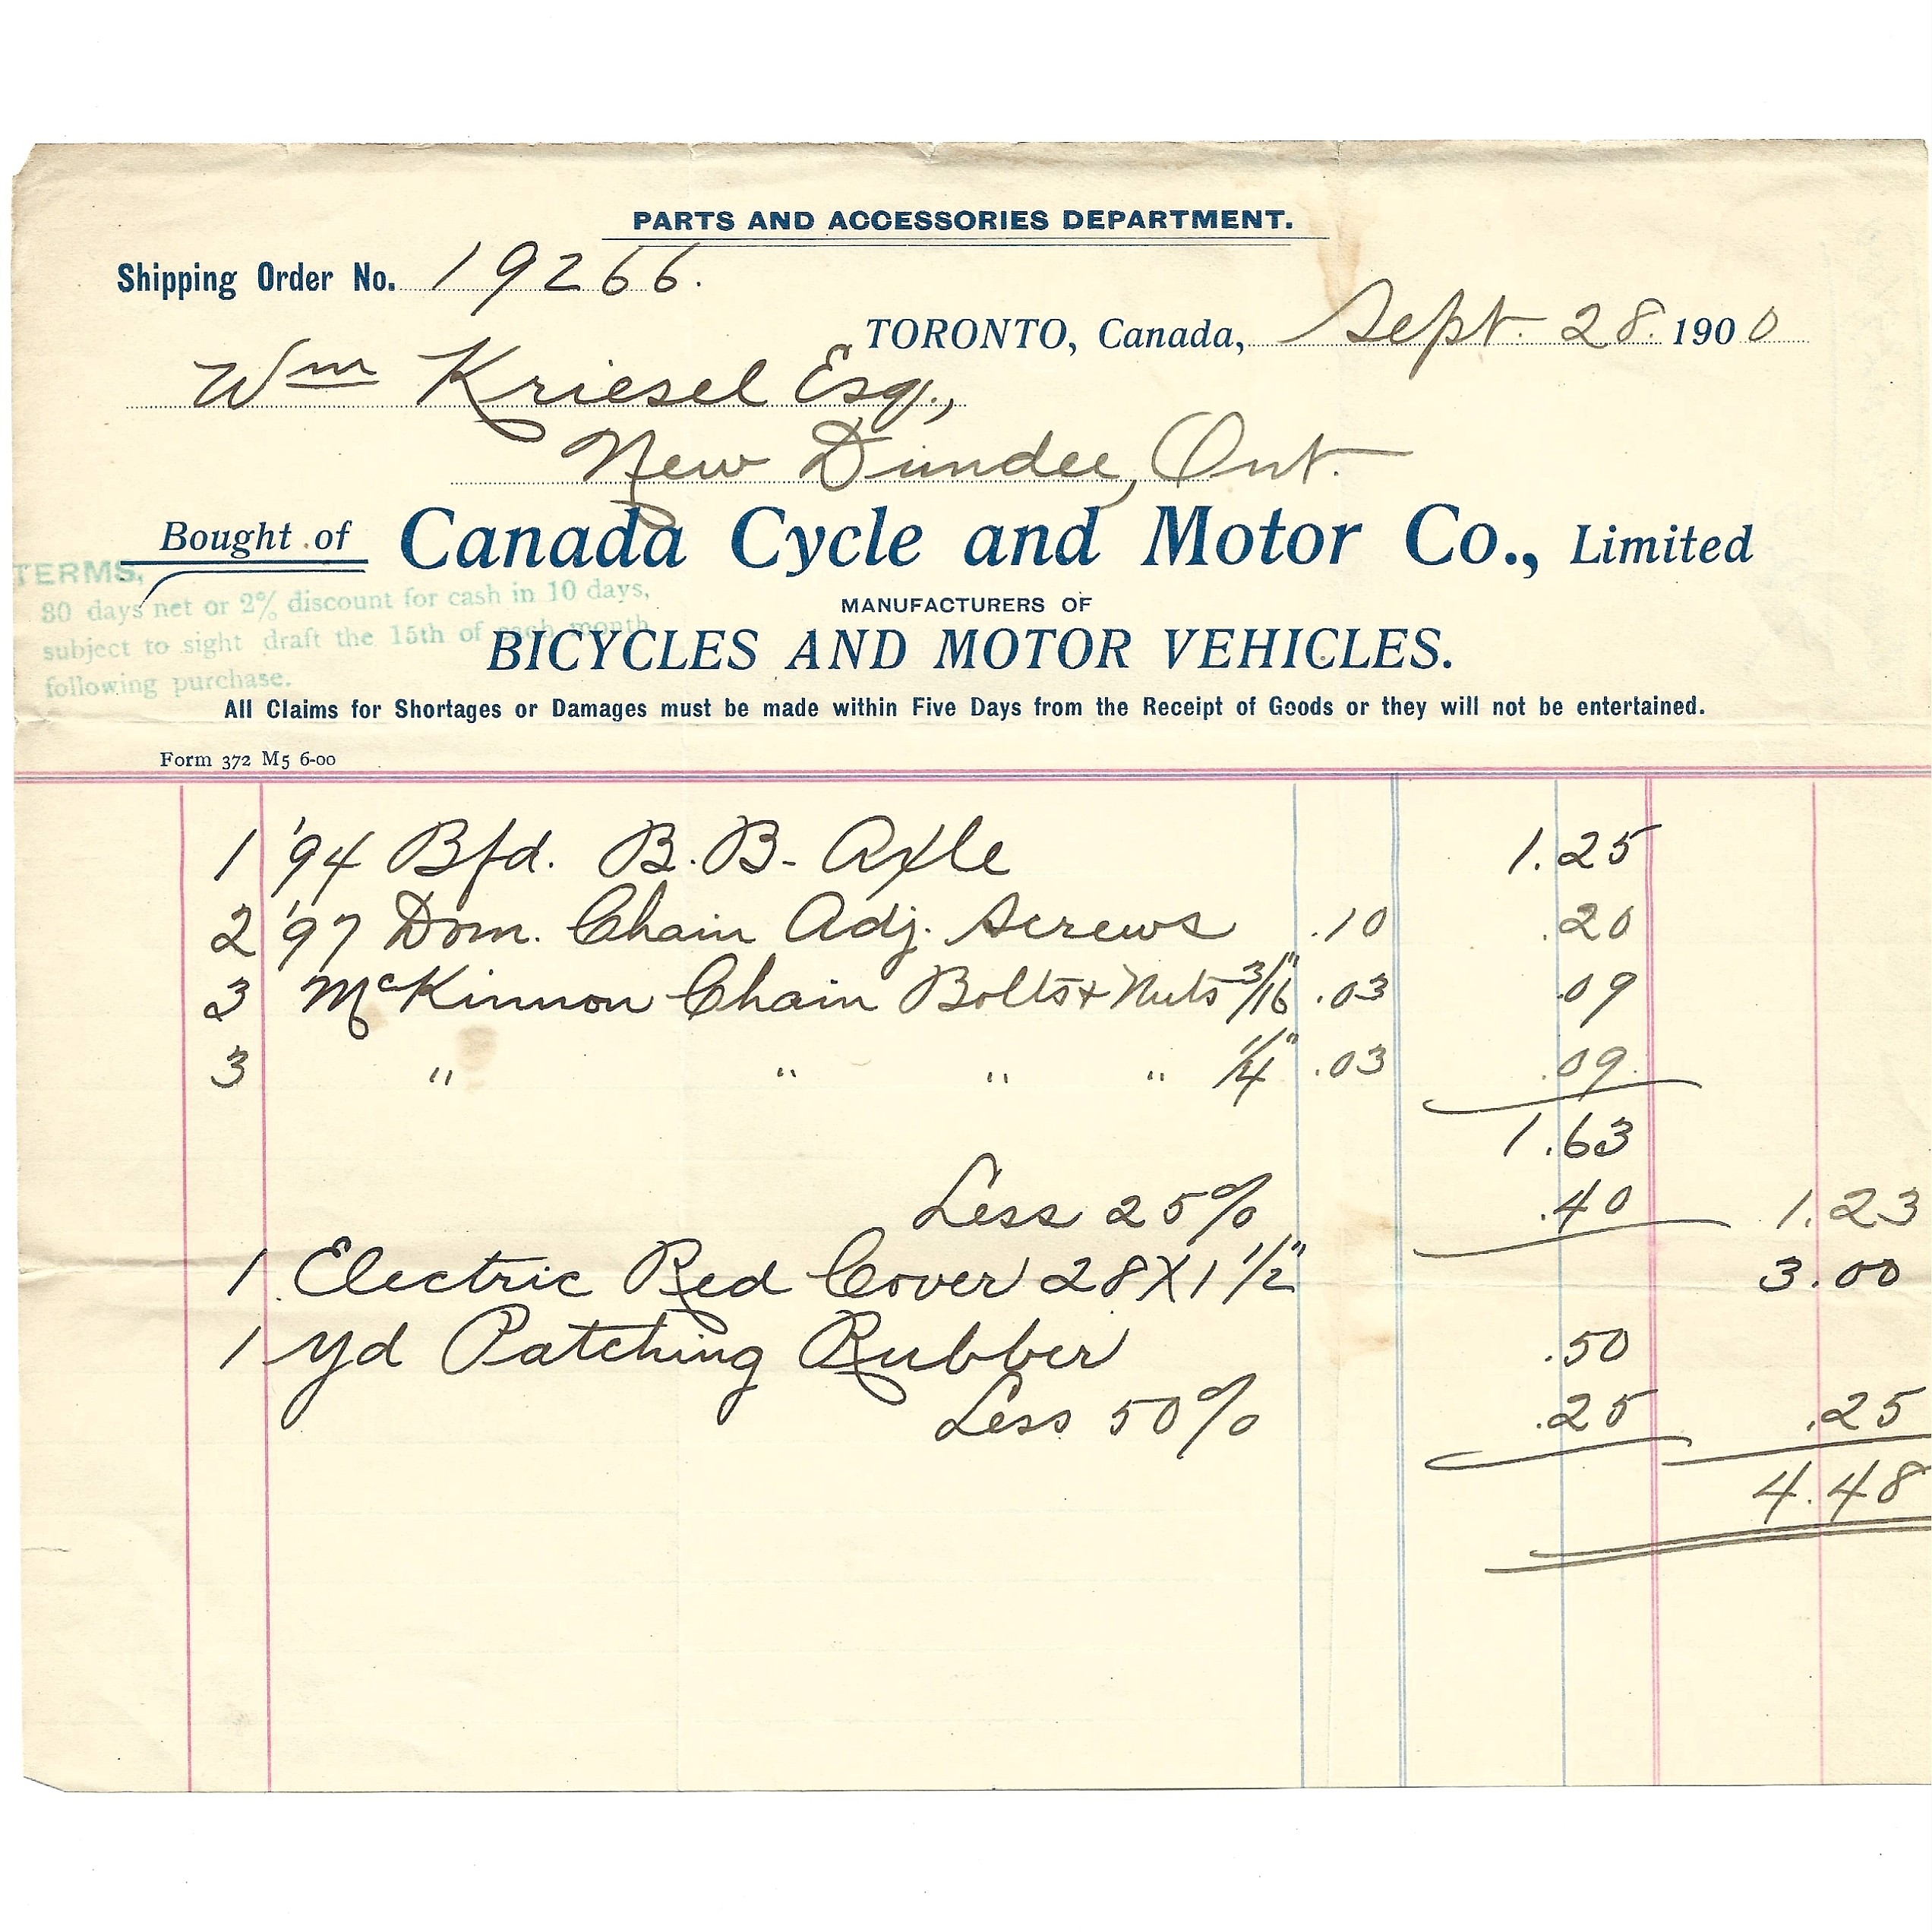 PARTS AND ACCESSORIES DEPARTMENT.
Shipping Order No. 19266.
TORONTO, Canada, Sept. 28. 1900
Wm Kriesel Esq.,
New Dundee, Ont.
Bought of Canada Cycle and Motor Co., Limited
TERMS,
30 days net or 2% discount for cash in 10 days,
subject to sight draft the 15th of each month
following purchase.
MANUFACTURERS OF
BICYCLES AND MOTOR VEHICLES.
All Claims for Shortages or Damages must be made within Five Days from the Receipt of Goods or they will not be entertained.
Form 372 M5 6-00
1 '94 Bfd. B.B. Axle 1.25
2 '97 Dom. Chain Adj. Screws .10 .20
3 McKinnon Chain Bolts & Nuts 3/16" .03 .09
3 " " " " 1/4" .03 .09
1.63
Less 25% .40 1.23
1 Electric Red Cover 28X1 1/2" 3.00
1 yd Patching Rubber .50
Less 50% .25 .25
4.48